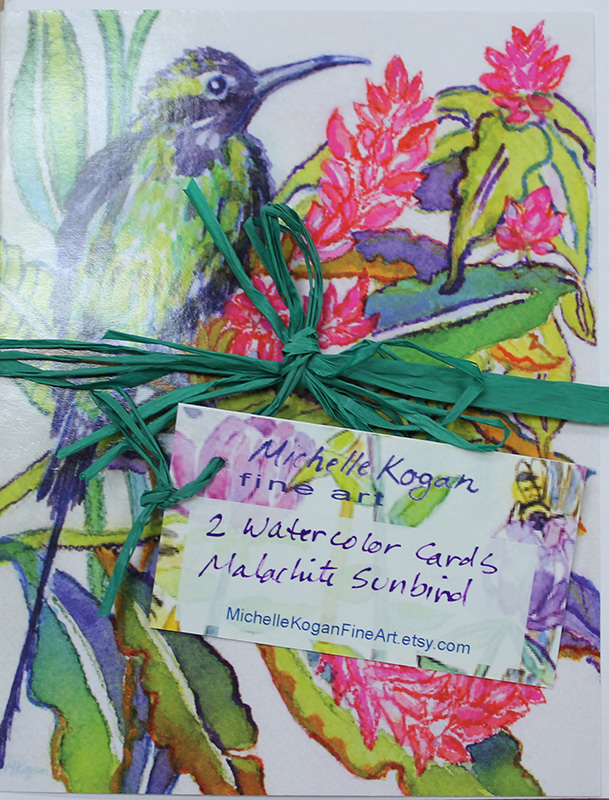 Michelle Kogan
fine art
2 Watercolor Cards
Malachite Sunbird
MichelleKoganFineArt.etsy.com